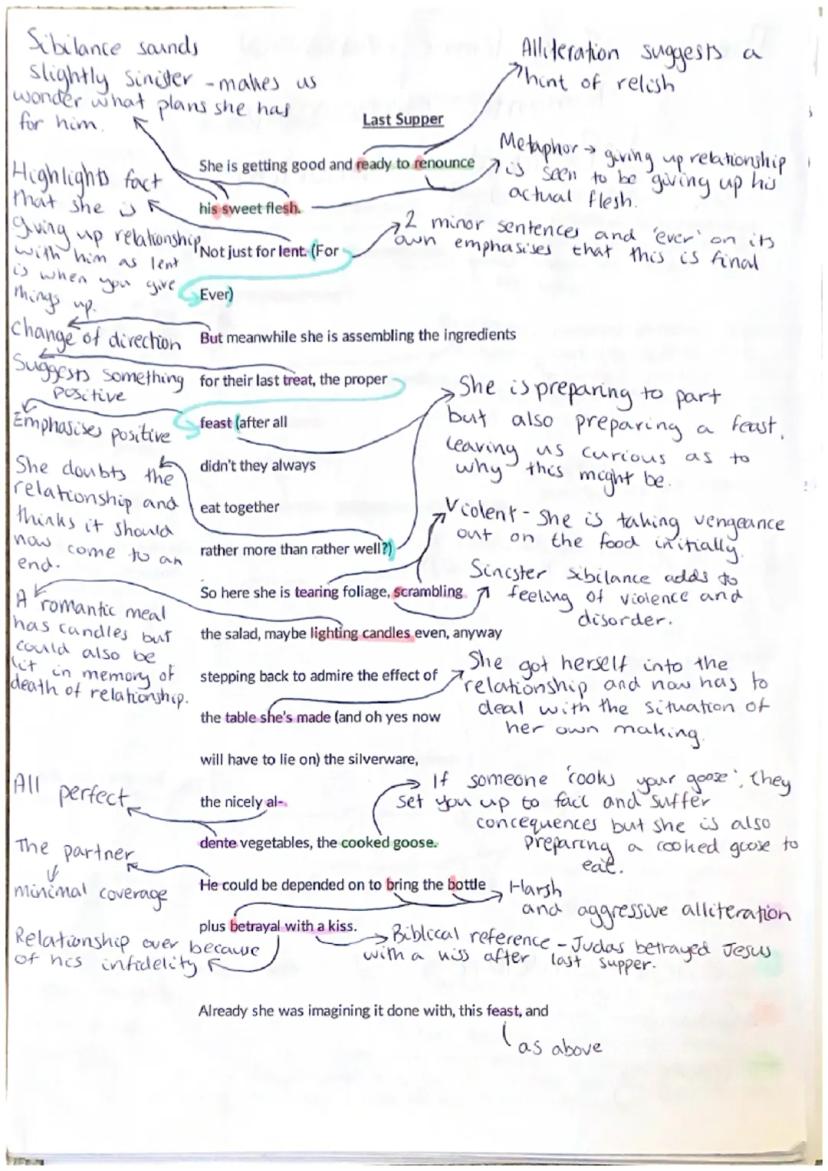 Sibilance sounds
slightly sinister - makes us
wonder what plans she has
for him.
Alliteration suggests a
hint of relish
Last Supper
She is getting good and ready to renounce
Metaphor → giving up relationship
is seen to be giving up his
actual flesh.
his sweet flesh.
Highlights fact
that she is
giving up relationship
with him as lent
is when you give
things up.
2 minor sentences and 'ever' on its
own emphasises that this is final
Not just for lent. (For
Ever)
Change of direction
But meanwhile she is assembling the ingredients
Suggests something
positive
for their last treat, the proper
Emphasises positive
feast (after all
She is preparing to part
but also preparing a feast,
leaving us curious as to
why this might be.
didn't they always
She doubts the
relationship and
thinks it should
now come to an
end.
eat together
rather more than rather well?)
Violent - She is taking vengeance
out on the food initially.
So here she is tearing foliage, scrambling
Sinister sibilance adds to
feeling of violence and
disorder.
A romantic meal
has candles but
could also be
lit in memory of
death of relationship.
the salad, maybe lighting candles even, anyway
stepping back to admire the effect of
She got herself into the
relationship and now has to
deal with the situation of
her own making.
the table she's made (and oh yes now
will have to lie on) the silverware,
All perfect
the nicely al-
If someone 'cooks your goose', they
set you up to fail and suffer
concequences but she is also
preparing a cooked goose to
eat.
dente vegetables, the cooked goose.
The partner
minimal coverage
He could be depended on to bring the bottle
Harsh
and aggressive alliteration
plus betrayal with a kiss.
Relationship over because
of his infidelity
Biblical reference - Judas betrayed Jesus
with a kiss after last supper.
Already she was imagining it done with, this feast, and
as above